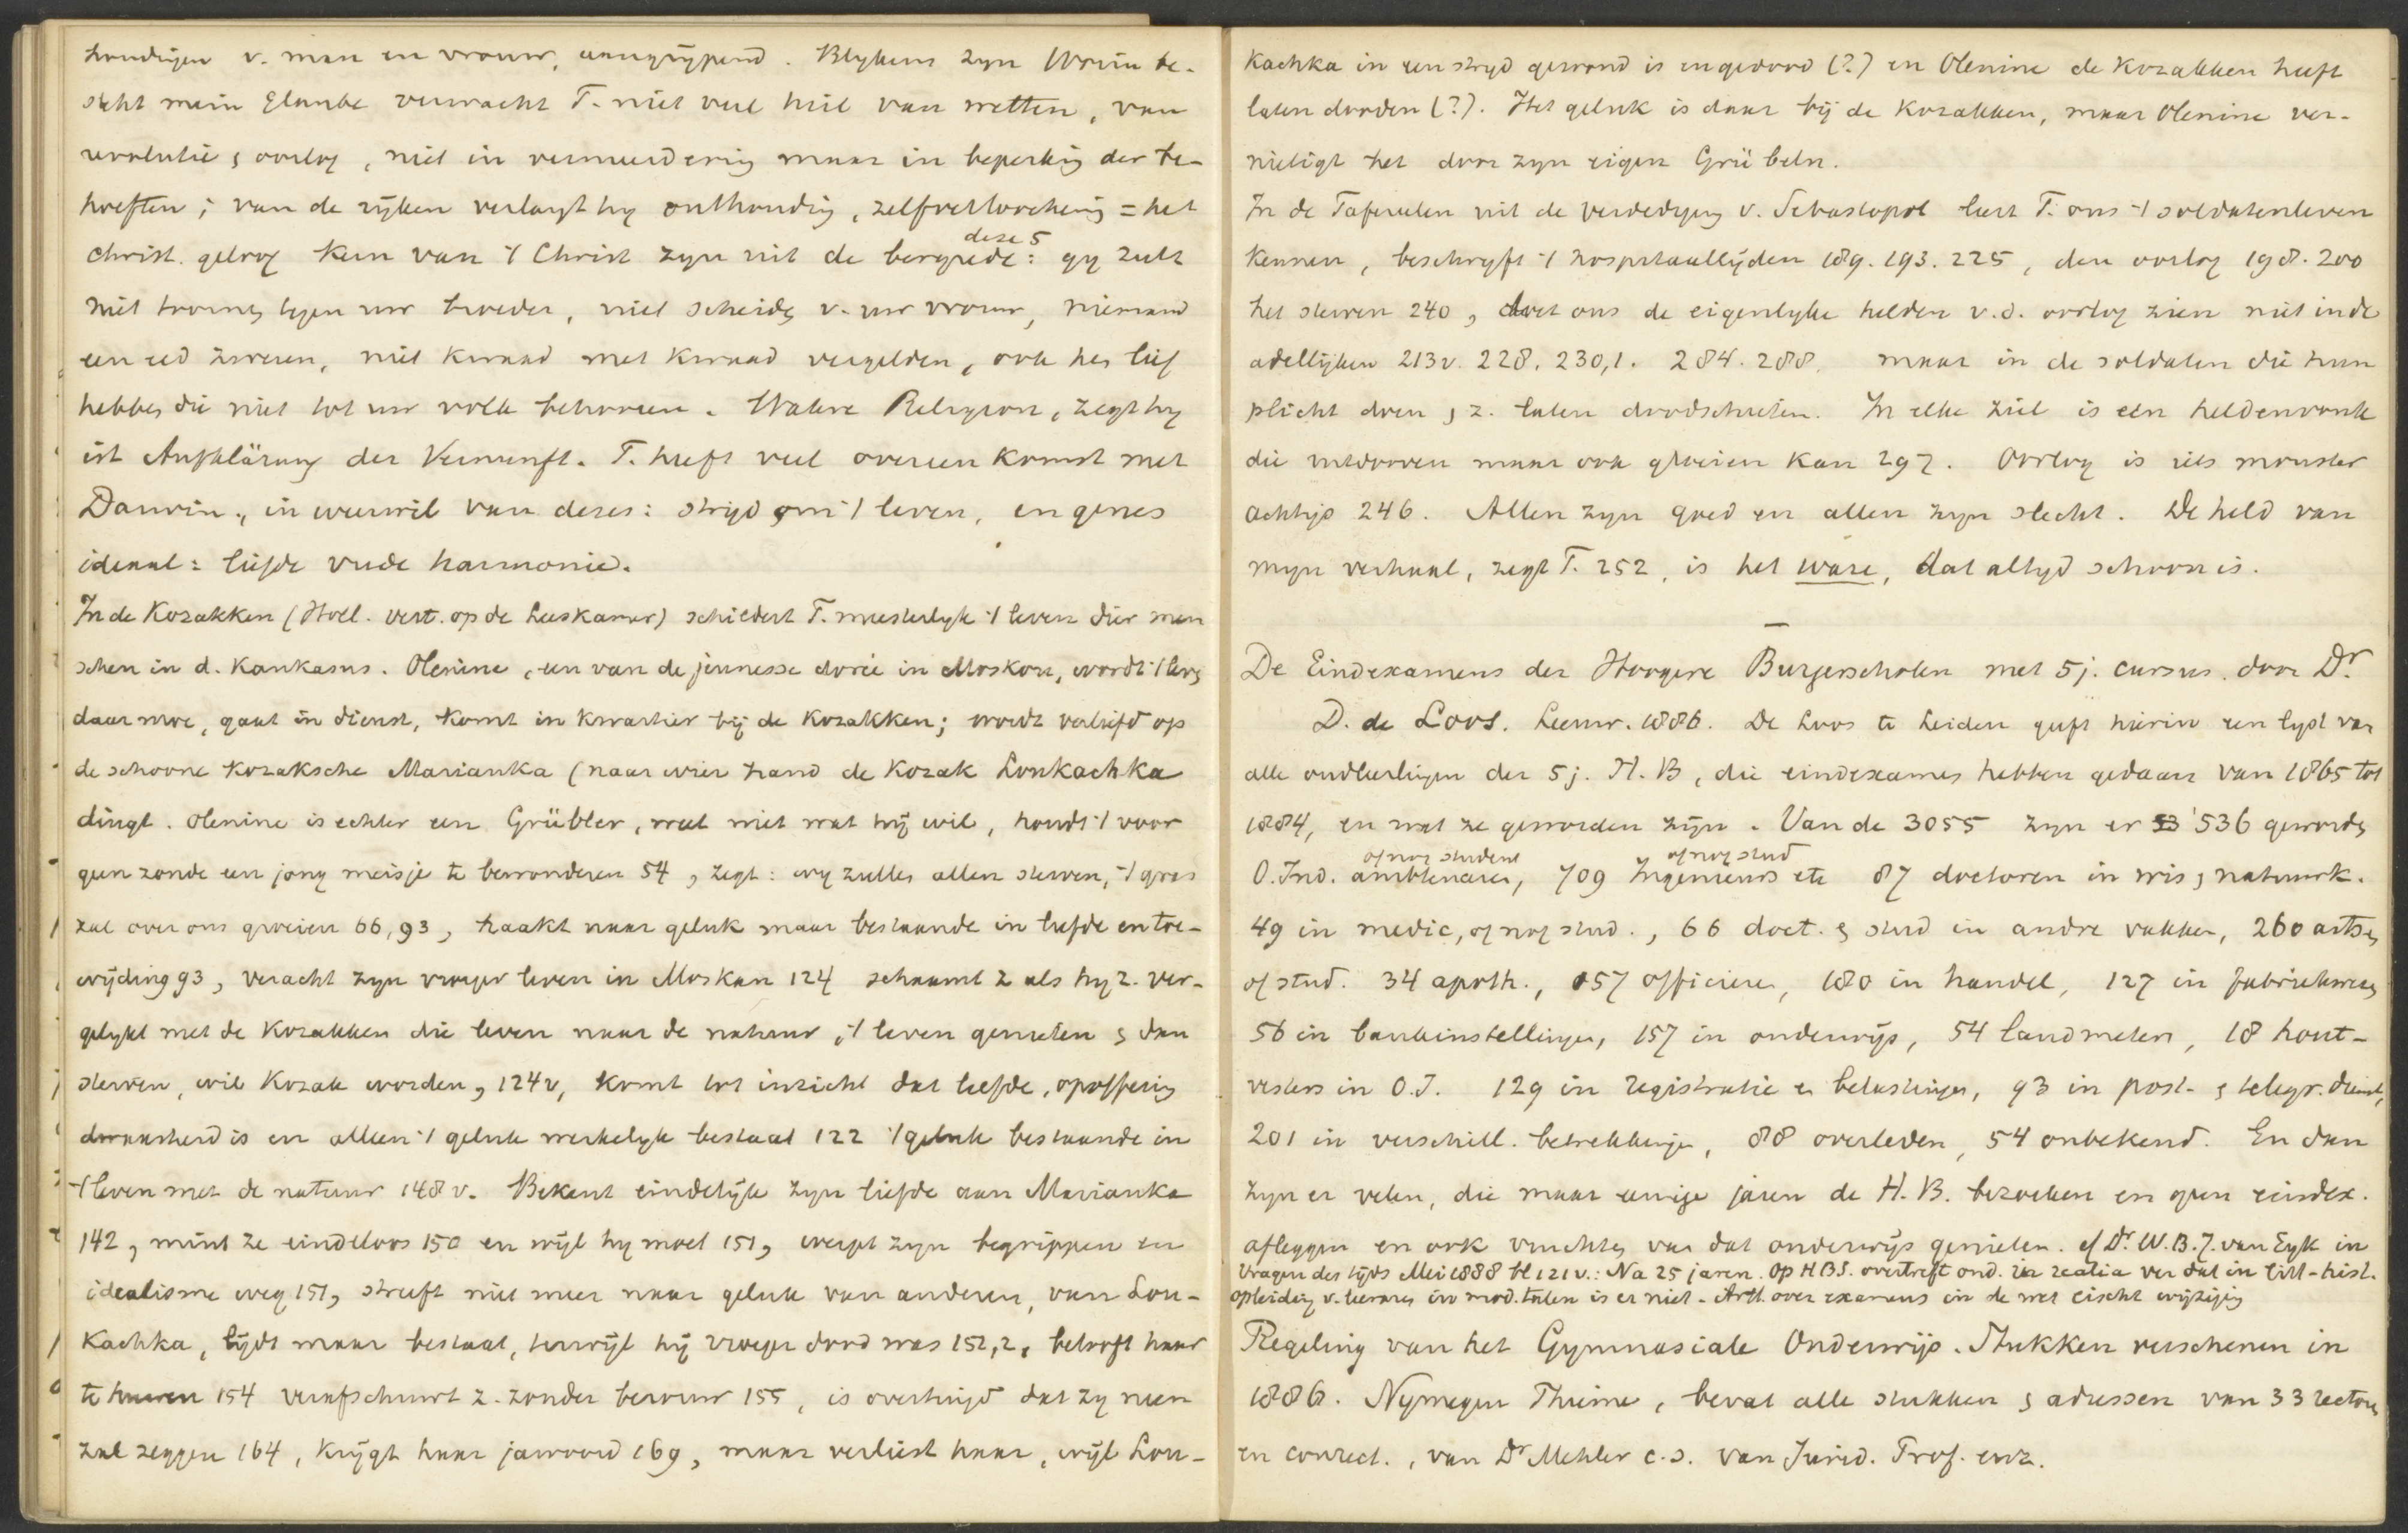 houdingen v. man en vrouw, aangrijpend. Blykens zyn Worin be-
steht mein Glaube verwacht T. niet veel heil van wetten, van
revolutie & oorlog, niet in vermeerdering maar in beperking der be-
hoeften; van de ryken verlangt hy onthouding, zelfverloochening = het
christ. geloof. Kern van 't Christ zyn uit de bergrede: deze 5 gy zult
niet toornes tegen uw broeder, niet scheides v. uw vrouw, niemand
een eed zweren, niet kwaad met kwaad vergelden, ook hes lief
hebbes die niet tot uw volk behooren. Wahre Religion, zegt hy
ist Aufklärung der Vernunft. T. heeft veel overeenkomst met
Darwin, in weerwil van dezes: strijd om 't leven, en genes
ideaal: liefde vrede harmonie.
In de Kozakken (Holl. vert. op de Leeskamer) schildert T. meesterlyk 't leven dier men
schen in d. Kaukasus. Olenine, een van de jeunesse dorée in Moskou, wordt 't leves
daar moe, gaat in dienst, komt in kwartier bij de Kozakken; wordt verliefd op
de schoone Kozaksche Marianka (naar wier hand de Kozak Loukachka
dingt. Olenine is echter een Grübler, weet niet wat hij wil, houdt 't voor
geen zonde een jong meisje te bewonderen 54, zegt: wy zulles allen sterven, 't gras
zal over ons groeien 66,93, haakt naar geluk maar bestaande in liefde en toe-
wijding 93, veracht zyn vroeger leven in Moskau 124 schaamt z als hy z. ver-
gelykt met de Kozakken die leven naar de natuur, 't leven genieten & dan
sterven, wil Kozak worden, 124v, komt tot inzicht dat liefde, opoffering
dwaasheid is en alleen 't geluk werkelyk bestaat 122 't geluk bestaande in
't leven met de natuur 148 v. Bekent eindelijk zyn liefde aan Marianka
142, mint ze eindeloos 150 en wijl hy moet 151, werpt zyn begrippen en
idealisme weg 151, streeft niet meer naar geluk van anderen, van Lou-
Kachka, lijdt maar bestaat, terwijl hij vroeger dood was 151,2, belooft haar
te huwen 154 verafschuwt z. zonder berouw 155, is overtuigd dat zy neen
zal zeggen 164, krijgt haar jawoord 169, maar verliest haar, wijl Lou-
Kachka in een stryd gewond is en gedood (?) en Olenine de Kozakken heeft
laten dooden (?). Het geluk is daar bij de Kozakken, maar Olenine ver-
nietigt het door zyn eigen Grübeln.
In de Tafereelen uit de verdediging v. Sebastopol leert T. ons 't soldatenleven
kennen, beschryft 't hospitaallijden 189. 193. 225, den oorlog 198. 200
het sterven 240, doet ons de eigenlyke helden v.d. oorlog zien niet in de
adellijken 213v. 228. 230,1. 284. 288. maar in de soldaten die hun
plicht doen & z. laten doodschieten. In elke ziel is een heldenvonk
die uitdooven maar ook gloeien kan 297. Oorlog is iets monster
achtigs 246. Allen zyn goed en allen zyn slecht. De held van
myn verhaal, zegt T. 252, is het ware, dat altyd schoon is.
—
De Eindexamens der Hoogere Burgerscholen met 5 j. cursus. door Dr.
D. de Loos. Leeuw. 1886. De Loos te Leiden geeft hierin een lyst van
alle oudleerlingen der 5 j. H. B, die eindexames hebben gedaan van 1865 tot
1884, en wat ze geworden zijn. Van de 3055 zyn er 536 gewordes
of nog student of nog stud
O. Ind. ambtenaren, 709 Ingenieurs etc 87 doctoren in wis & natuurk.
49 in medic, of nog stud., 66 doct. & stud in andre vakken, 260 artses
of stud. 34 apoth., 157 officieren, 180 in handel, 127 in fabriekwezes
56 in bankinstellingen, 157 in onderwijs, 54 landmeters, 18 hout-
vesters in O.I. 129 in registratie en belastingen, 93 in post- & telegr. dienst,
201 in verschill. betrekkingen, 88 overleden, 54 onbekend. En dan
zyn er velen, die maar eenige jaren de H. B. bezoeken en geen eindex.
afleggen en ook vruchtes van dat onderwijs genieten. cf Dr. W. B. J. van Eyk in
Vragen des tijds Mei 1888 bl 121v.: Na 25 jaren. Op HBS. overtreft ond. in realia ver dat in litt-hist.
opleiding v. leerares in mod. talen is er niet. Artt. over examens in de wet eischt wijziging
Regeling van het Gymnasiale Onderwijs. Stukken verschenen in
1886. Nymegen Thieme, bevat alle stukken & adressen van 33 rectores
en conrect., van Dr Mehler c.s. van Jurid. Prof. enz.